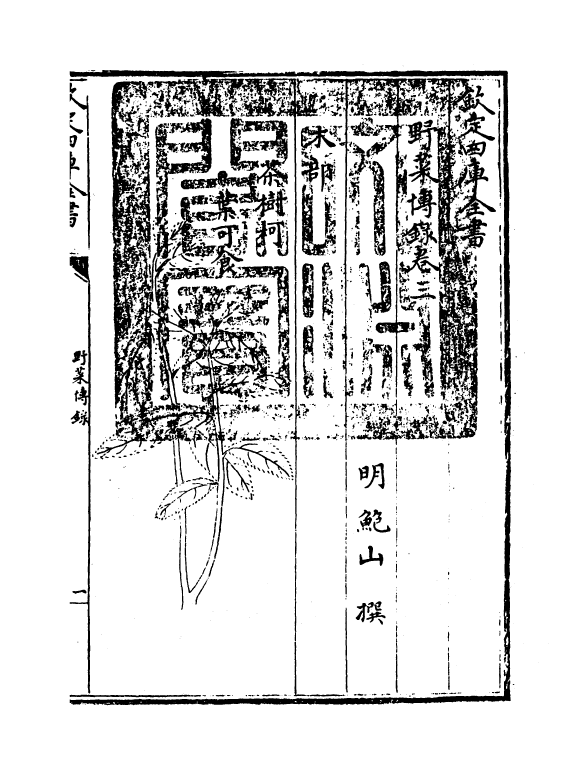 欽定四庫全書
野菜博錄卷三
明 鮑山 撰
木部
茶樹柯
葉可食
欽定四庫全書
野菜博錄
一
文淵閣寶